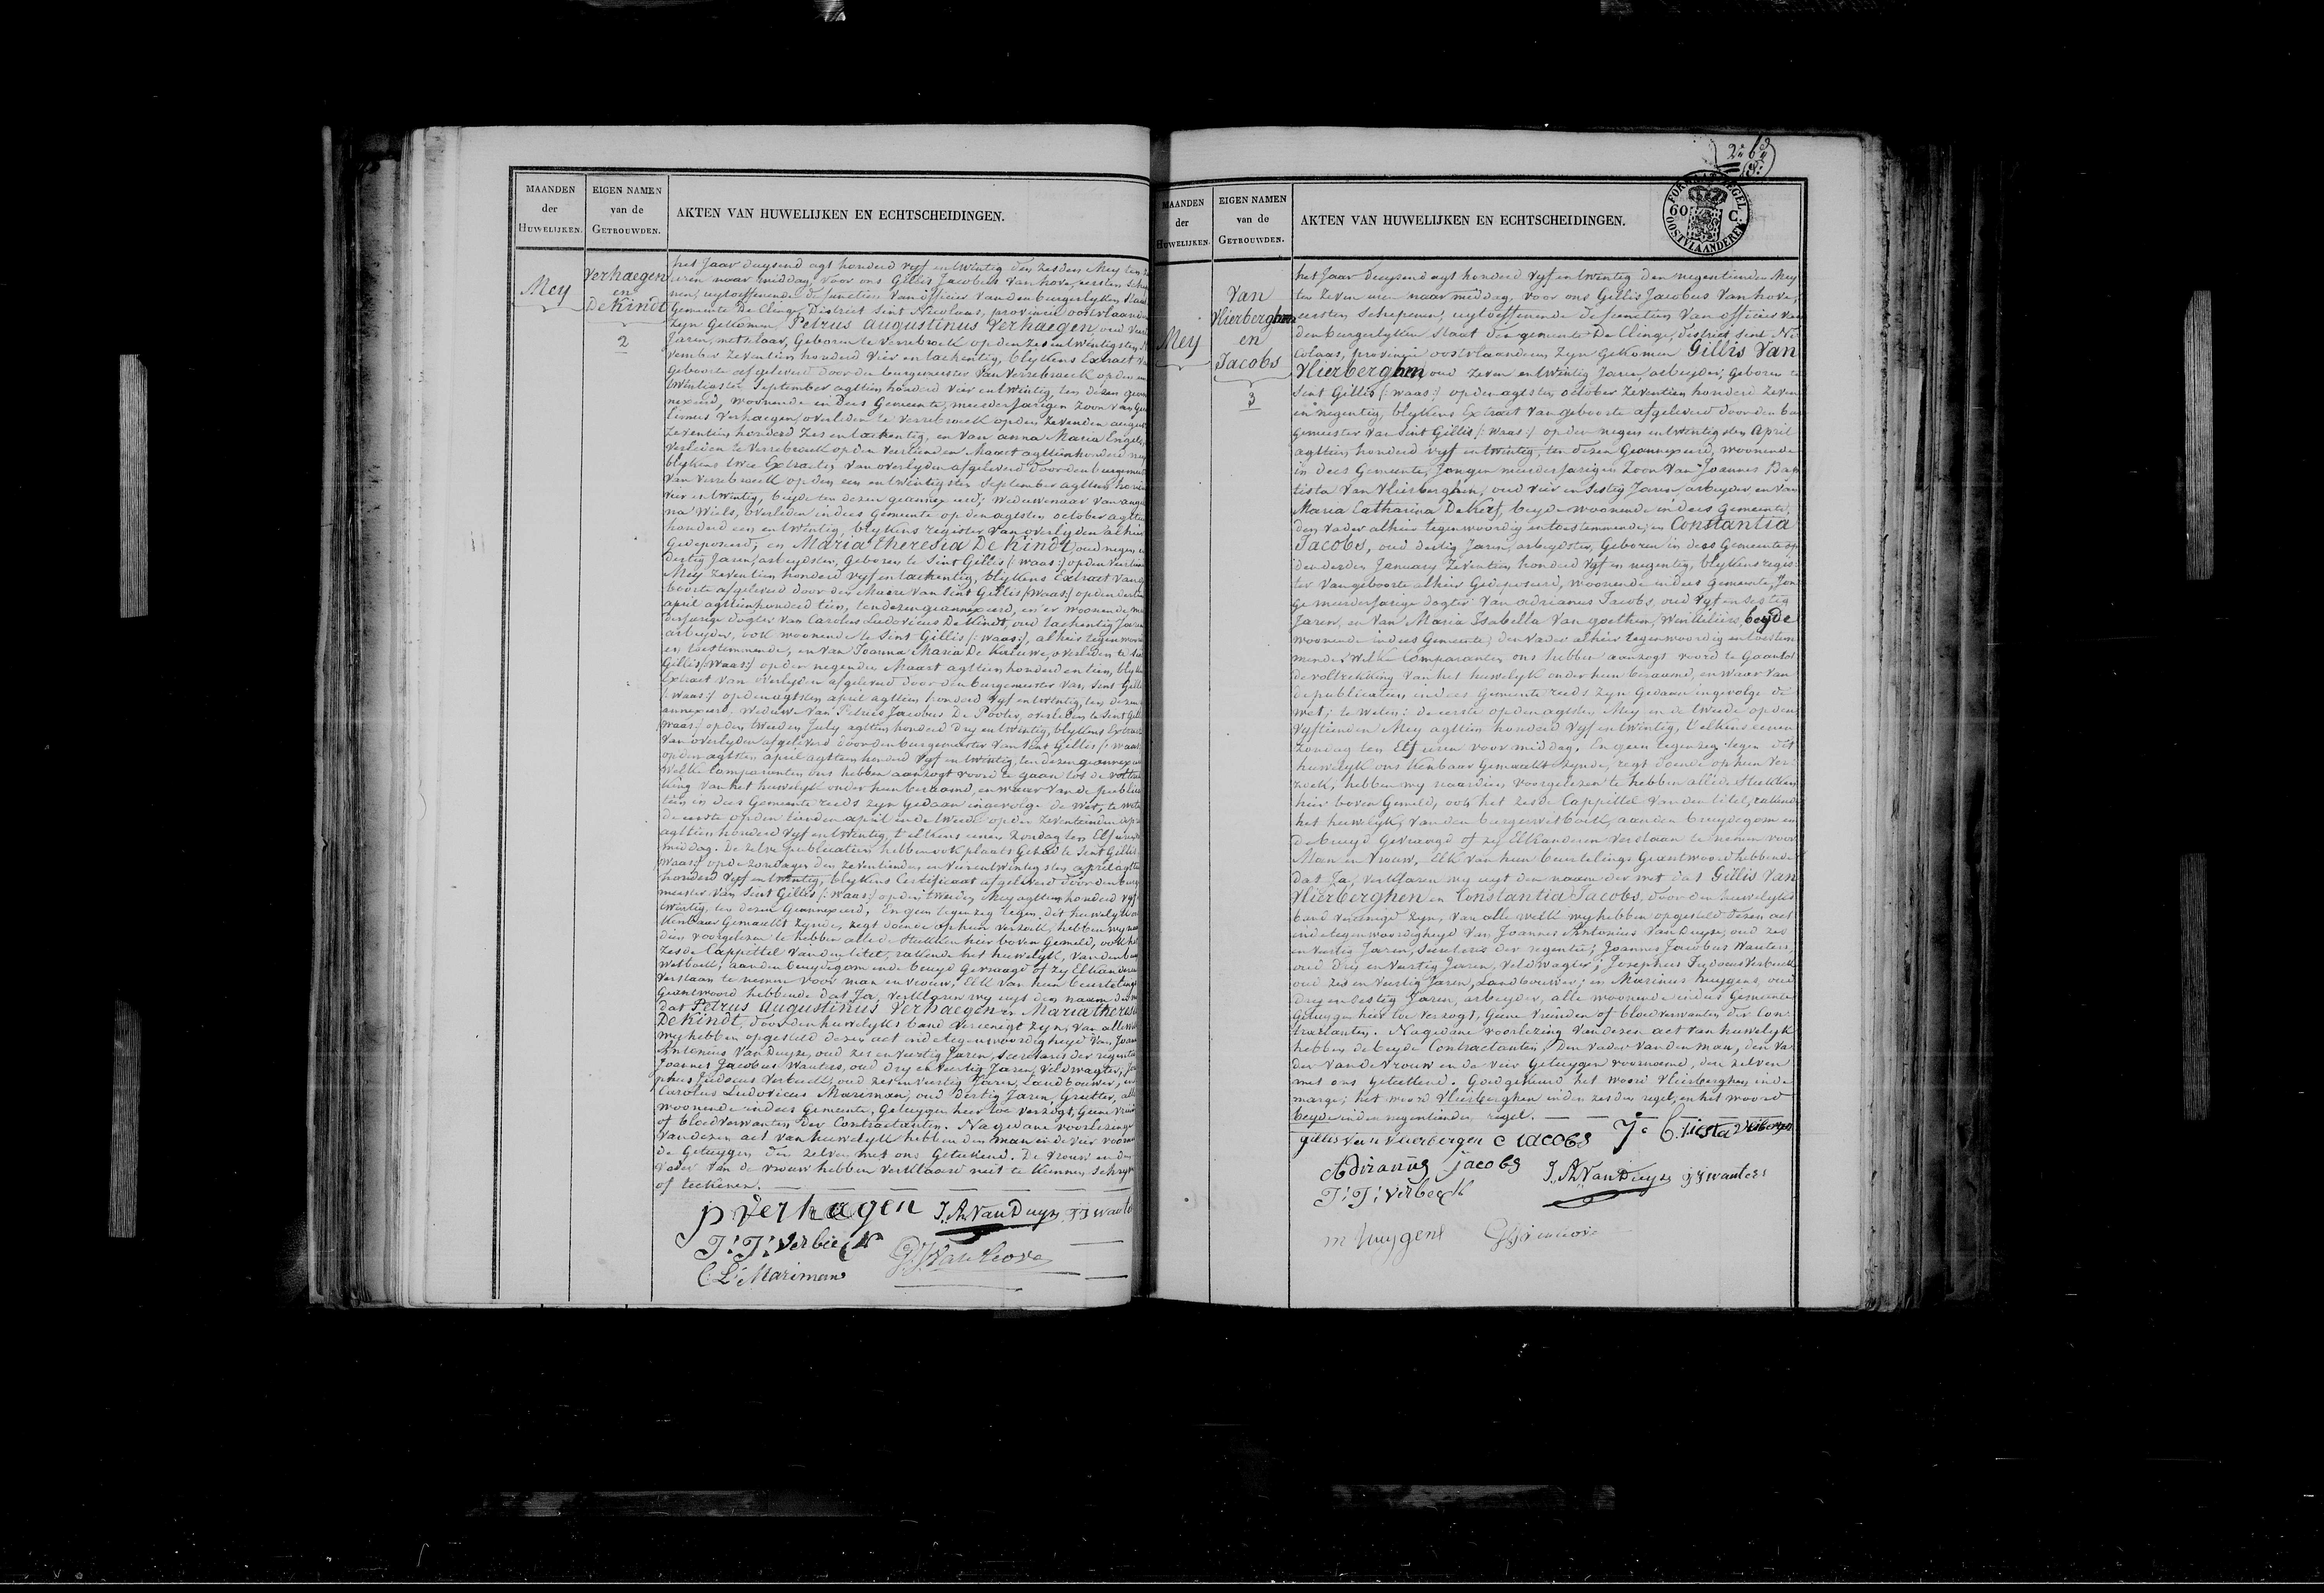 MAANDEN
der
HUWELIJKEN.
EIGEN NAMEN
van de
GETROUWDEN.
AKTEN VAN HUWELIJKEN EN ECHTSCHEIDINGEN.
Mey
Verhaegen
en
De Kindt
2
het Jaar duyzend agt honderd vyf en twintig den zesden Mey ten
uren naar middag, voor ons Gillis Jacobus Van hove, eersten Sche
nen, uytoeffenende de functien van officier van den burgerlyken Staat
Gemeente De Clinge, District Sint Nicolaas, provincie oostvlaand
Zyn Gekomen Petrus augustinus Verhaegen, oud
Jaren, metselaar, Geboren te Verrebroeck op den zes en twintigsten
vember zeventien honderd vier en tachentig, blykens Extract
Geboorte afgeleverd door den burgemeester van Verrebroeck op den
twintigsten September agttien honderd vier en twintig, ten dezen gean
nexeerd, woonende in dees Gemeente, meerderjarigen Zoon van
Verhaegen, overleden te Verrebroeck op den zevenden
zeventien honderd zes en tachentig, en van anna Maria Engels,
verleden te Verrebroeck op den veertienden Maart agttienhonderd
blykens twee Extracten van overlyden afgeleverd door den burgemeest
van Verrebroeck op den een en twintigsten September agttien
vier en twintig, beyde ten dezen geannexeerd; weduwenaar van
na Wiels, overleden in dees Gemeente op den agtsten october agttien
honderd een en twintig, blykens register van overlyden alhier
Gedeponeerd, en Maria theresia De Kindt, oud negen
dertig Jaren, arbeydster, Geboren te Sint Gillis (: Waas:) op den
Mey zeventien honderd vyf en tachentig, blykens Extract van
boorte afgeleverd door den Maire van Sint Gillis (: Waas:) op den
april agttienhonderd tien, ten dezen geannexeerd, en er woonende,
derjarige dogter van Carolus Ludovicus De Kindt, oud tachentig Jaren
arbeyder, ook woonende te Sint Gillis (: Waas:), alhier tegenwoor
en toestemmende, en van Joanna Maria De Kauwe, overleden te
Gillis (: Waas:) op den negenden Maart agttien honderd en tien,
Extract van overlyden afgeleverd door den burgemeester van Sint Gillis
(: Waas:) op den agtsten april agttien honderd vyf en twintig, ten dezen
annexeerd, weduwe van Petrus Jacobus De Pooter, overleden te Sint
Waas:) op den tweeden July agttien honderd dry en twintig, blykens Extract
van overlyden afgeleverd door den burgemeester van Sint Gillis (: Waas
op den agtsten april agttien honderd vyf en twintig, ten dezen geannexeerd
Welke Comparanten ons hebben aanzogt voord te gaan tot de voltrek
king van het huwelyk onder hun beraamd, en waar van de publica
tien in dees Gemeente reeds zyn Gedaan ingevolge de wet, te weten
de eerste op den tienden april en de tweede op den zeventienden
agttien honderd vyf en twintig, t elkens eenen zondag ten Elf uren
middag. De zelve publicatien hebben ook plaats Gehad te Sint Gillis
Waas:) op de zondagen den zeventienden en vier en twintigsten april
honderd vyf en twintig, blykens Certificaat afgeleverd door den burg
meester van Sint Gillis (: Waas:) op den tweeden Mey agttien honderd
twintig, ten dezen Geannexeerd. En geen tegenzeg tegen dit huwelyk
Kenbaar Gemaekt zynde, regt doende op hun verzoek, hebben wy
dien voorgelezen te hebben alle de stukken hier boven Gemeld, ook
zesde Cappittel van den titel, rakende het huwelyk, van den
wetboek, aan den bruydegom en de bruyd Gevraagd of zy Elkanderen
verstaan te nemen voor man en vrouw, Elk van hun beurtelings
Geantwoord hebbende dat Ja, verklaren wy uyt den naam der
dat Petrus augustinus Verhaegen en Maria theresia
De Kindt, door den huwelyks band vereenigt zyn, van alle
wy hebben opgesteld dezen act in de tegenwoordigheyd van
Antonius Van Duyze, oud zes en veertig Jaren, Secretaris der regentie,
Joannes Jacobus Wauters, oud dry en veertig Jaren, Veldwagter,
phus Judocus Verbeeck, oud zes en veertig Jaren, Landbouwer, en
Carolus Ludovicus Mariman, oud dertig Jaren, Greitter, alle
woonende in dees Gemeente, Getuygen hier toe verzogt, Geene
of bloedverwanten der Contractanten. Na gedane voorlezinge
van dezen act van huwelyk hebben den man en de vier
de Getuygen den zelven met ons Geteekend. De vrouw en den
Vader van de vrouw hebben verklaard niet te kunnen schryven
of teekenen.
p Verhagen J. An. Van Duyze JJ Waute
J: J: Verbeeck
C L Mariman GJ Van hove
2
MAANDEN
der
HUWELIJKEN.
EIGEN NAMEN
van de
GETROUWDEN.
AKTEN VAN HUWELIJKEN EN ECHTSCHEIDINGEN.
60 C.
OOSTVLAANDEREN
Mey
Van
Vlierberghen
en
Jacobs
3
het Jaar duyzend agt honderd vyf en twintig den negentienden Mey
ten zeven uren naar middag, voor ons Gillis Jacobus Van hove,
eersten Schepenen, uytoeffenende de functien van officier van
den burgerlyken Staat der gemeente De Clinge, district Sint Ni
colaas, provincie oostvlaenderen, zyn Gekomen Gillis Van
Vlierberghen, oud zeven en twintig Jaren, arbeyder, Geboren te
Sint Gillis (: Waas:) op den agtsten october zeventien honderd zeven
en negentig, blykens Extract van geboorte afgeleverd door den bur
gemeester van Sint Gillis (: Waas:) op den negen en twintigsten April
agttien honderd vyf en twintig, ten dezen Geannexeerd, woonende
in dees Gemeente, Jongen meerderjarigen zoon van Joannes Bap
tista Van Vlierberghen, oud vier en sestig Jaren, arbeyder en van
Maria Catharina De Kerf, beyde woonende in dees Gemeente,
den vader alhier tegenwoordig en toestemmende, en Constantia
Jacobs, oud dertig Jaren, arbeydster, Geboren in dees Gemeente op
den derden January zeventien honderd vyf en negentig, blykens regis
ter van geboorte alhier Gedeponeerd, woonende in dees gemeente, Jon
ge meerderjarige dogter van Adrianus Jacobs, oud vyf en sestig
Jaren, en van Maria Isabella Van goethem, Winkeliers, beyde
woonende in dees Gemeente, den vader alhier tegenwoordig en toestem
mende. Welke Comparanten ons hebben aanzogt voord te Gaan tot
de voltrekking van het huwelyk onder hun beraamd, en waar van
de publicatien in dees Gemeente reeds zyn Gedaan ingevolge de
wet; te weten: de eerste op den agtsten Mey en de tweede op den
vyftienden Mey agttien honderd vyf en twintig, t elkens eenen
zondag ten Elf uren voor middag. En geen tegenzeg tegen dit
huwelyk ons Kenbaar Gemaekt zynde, regt doende op hun ver
zoek, hebben wy naardien voorgelezen te hebben alle de stukken
hier boven Gemeld, ook het zesde Cappittel van den titel, rakende
het huwelyk, van den burgerwetboek, aan den bruydegom en
de bruyd Gevraagd of zy Elkanderen verstaan te nemen voor
Man en Vrouw, Elk van hun beurtelings Geantwoord hebbende
dat Ja, verklaren wy uyt den naam der wet dat Gillis Van
Vlierberghen en Constantia Jacobs, door den huwelyks
band vereenigd zyn, van alle welk wy hebben opgesteld dezen act
in de tegenwoordigheyd van Joannes Antonius Van Duyze, oud zes
en veertig Jaren, Secretaris der regentie, Joannes Jacobus Wauters,
oud dry en veertig Jaren, Veldwagter, Josephus Judocus Verbeeck
oud zes en veertig Jaren, Landbouwer, en Marinus huygens, oud
dry en sestig Jaren, arbeyder, alle woonende in dees Gemeente
Getuygen hier toe verzogt, Geene vrienden of bloedverwanten der Con
tractanten. Na gedane voorlezing van dezen act van huwelyk
hebben de beyde Contractanten, den vader van den man, den va
der van de vrouw en de vier Getuygen voornoemd, den zelven
met ons Geteekend. Goedgekeurd het woord Vlierberghen in de
marge; het woord Vlierberghen in den zesden regel, en het woord
beyde in den negentienden regel.
gillis Van Vlierbergen C iacobs
Adrianus jacobs J. An. Van Duyze JJ Wauters
J: J: Verbeeck
m huygens